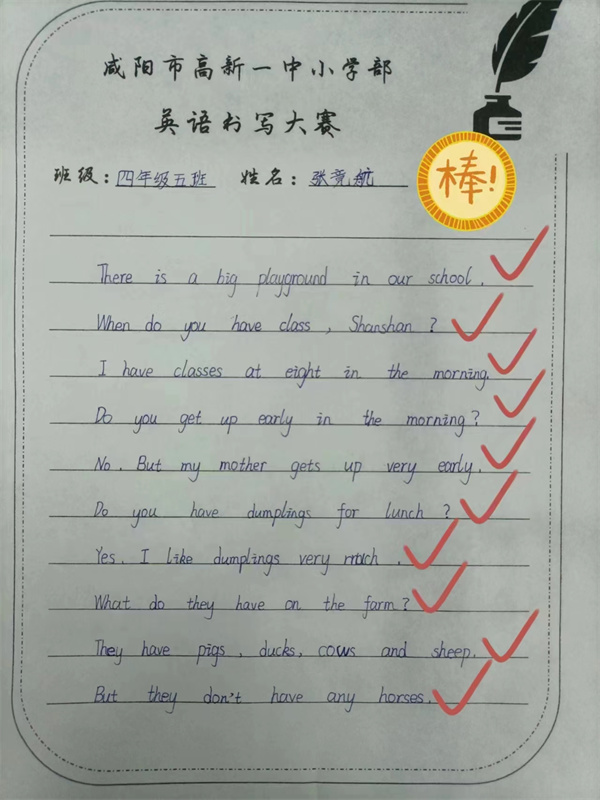 咸阳市高新一中小学部
英语书写大赛
班级：四年级五班 姓名：张竞航
棒！
There is a big playground in our school.
When do you have class , Shanshan ?
I have classes at eight in the morning.
Do you get up early in the morning?
No. But my mother gets up very early.
Do you have dumplings for lunch ?
Yes. I like dumplings very much .
What do they have on the farm?
They have pigs , ducks, cows and sheep.
But they don't have any horses.